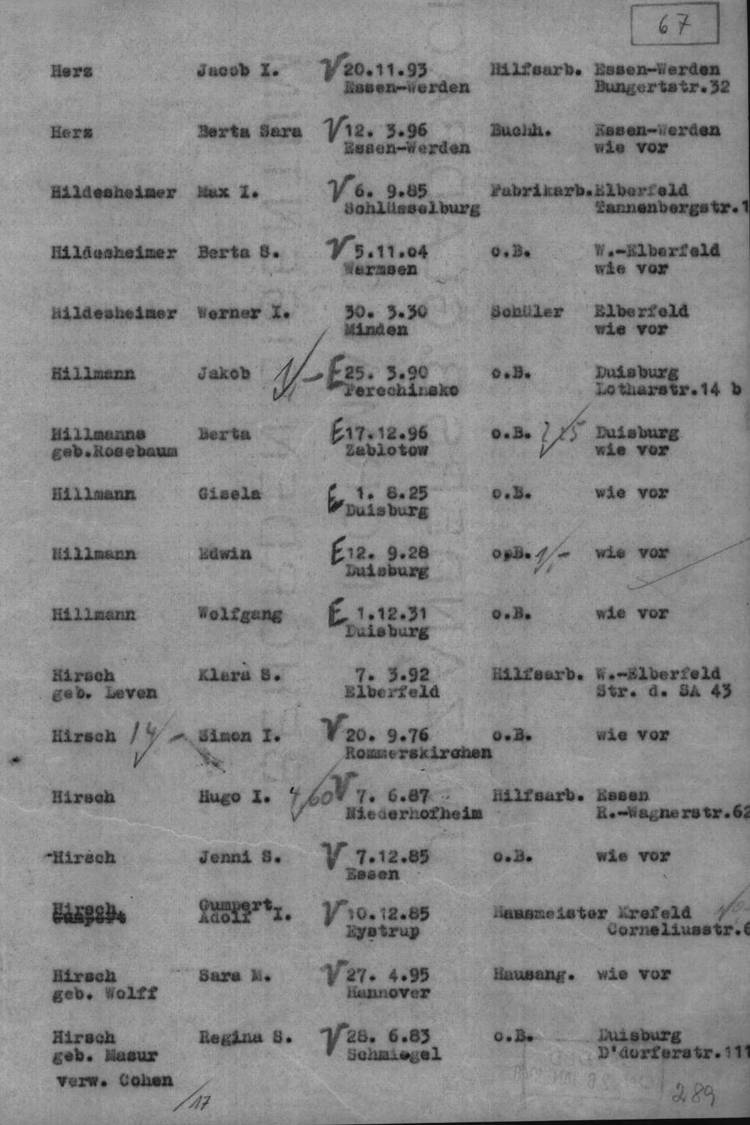 67
Herz Jacob I. V 20.11.93 Hilfsarb. Essen-Werden
Essen-Werden Bungertstr.32
Herz Berta Sara V 12. 3.96 Buchh. Essen-Werden
Essen-Werden wie vor
Hildesheimer Max I. V 6. 9.85 Fabrikarb. Elberfeld
Schlüsselburg Tannenbergstr.1
Hildesheimer Berta S. V 5.11.04 o.B. W.-Elberfeld
Warmsen wie vor
Hildesheimer Werner I. 30. 3.30 Schüler Elberfeld
Minden wie vor
Hillmann Jakob E 25. 3.90 o.B. Duisburg
Perechinsko Lotharstr.14 b
Hillmanns Berta E 17.12.96 o.B. Duisburg
geb.Rosebaum Zablotow wie vor
Hillmann Gisela E 1. 8.25 o.B. wie vor
Duisburg
Hillmann Edwin E 12. 9.28 o.B. wie vor
Duisburg
Hillmann Wolfgang E 1.12.31 o.B. wie vor
Duisburg
Hirsch Klara S. 7. 3.92 Hilfsarb. W.-Elberfeld
geb. Leven Elberfeld Str. d. SA 43
Hirsch 14 Simon I. V 20. 9.76 o.B. wie vor
Rommerskirchen
Hirsch Hugo I. V 7. 6.87 Hilfsarb. Essen
Niederhofheim R.-Wagnerstr.62
-Hirsch Jenni S. V 7.12.85 o.B. wie vor
Essen
Hirsch Gumpert
Gumpert Adolf I. V 10.12.85 Hausmeister Krefeld
Eystrup Corneliusstr.6
Hirsch Sara M. V 27. 4.95 Hausang. wie vor
geb. Wolff Hannover
Hirsch Regina S. V 28. 6.83 o.B. Duisburg
geb. Masur Schmiegel D'dorferstr.111
verw. Cohen
/17
289